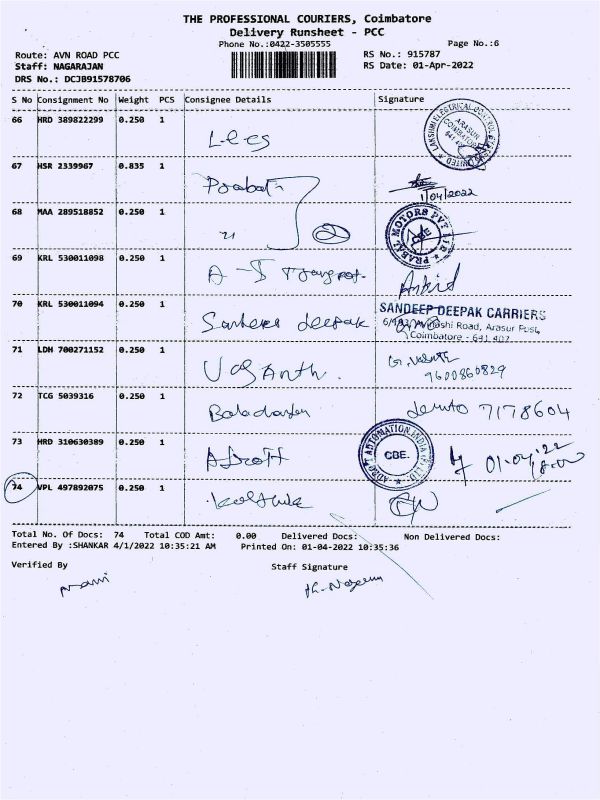 THE PROFESSIONAL COURIERS, Coimbatore
Delivery Runsheet - PCC
Phone No.:0422-3505555
Page No.:6
Route: AVN ROAD PCC
RS No.: 915787
Staff: NAGARAJAN
RS Date: 01-Apr-2022
DRS No.: DCJB91578706
S No Consignment No Weight PCS Consignee Details Signature
66 HRD 389822299 0.250 1
67 HSR 2339967 0.835 1
1/04/2022
68 MAA 289518852 0.250 1
21 2
PRABAL MOTORS PVT LTD
CBE
69 KRL 530011098 0.250 1
70 KRL 530011094 0.250 1 deepak
SANDEEP DEEPAK CARRIERS
Road, Arasur Post,
Coimbatore - 641 407
71 LDH 700271152 0.250 1 Vasanth.
9600860829
72 TCG 5039316 0.250 1
7178604
73 HRD 310630389 0.250 1
ADROIT AUTOMATION INDIA (P) LTD.
CBE.
01-04-'22
74 VPL 497892075 0.250 1
Total No. Of Docs: 74 Total COD Amt: 0.00 Delivered Docs: Non Delivered Docs:
Entered By :SHANKAR 4/1/2022 10:35:21 AM Printed On: 01-04-2022 10:35:36
Verified By
Staff Signature